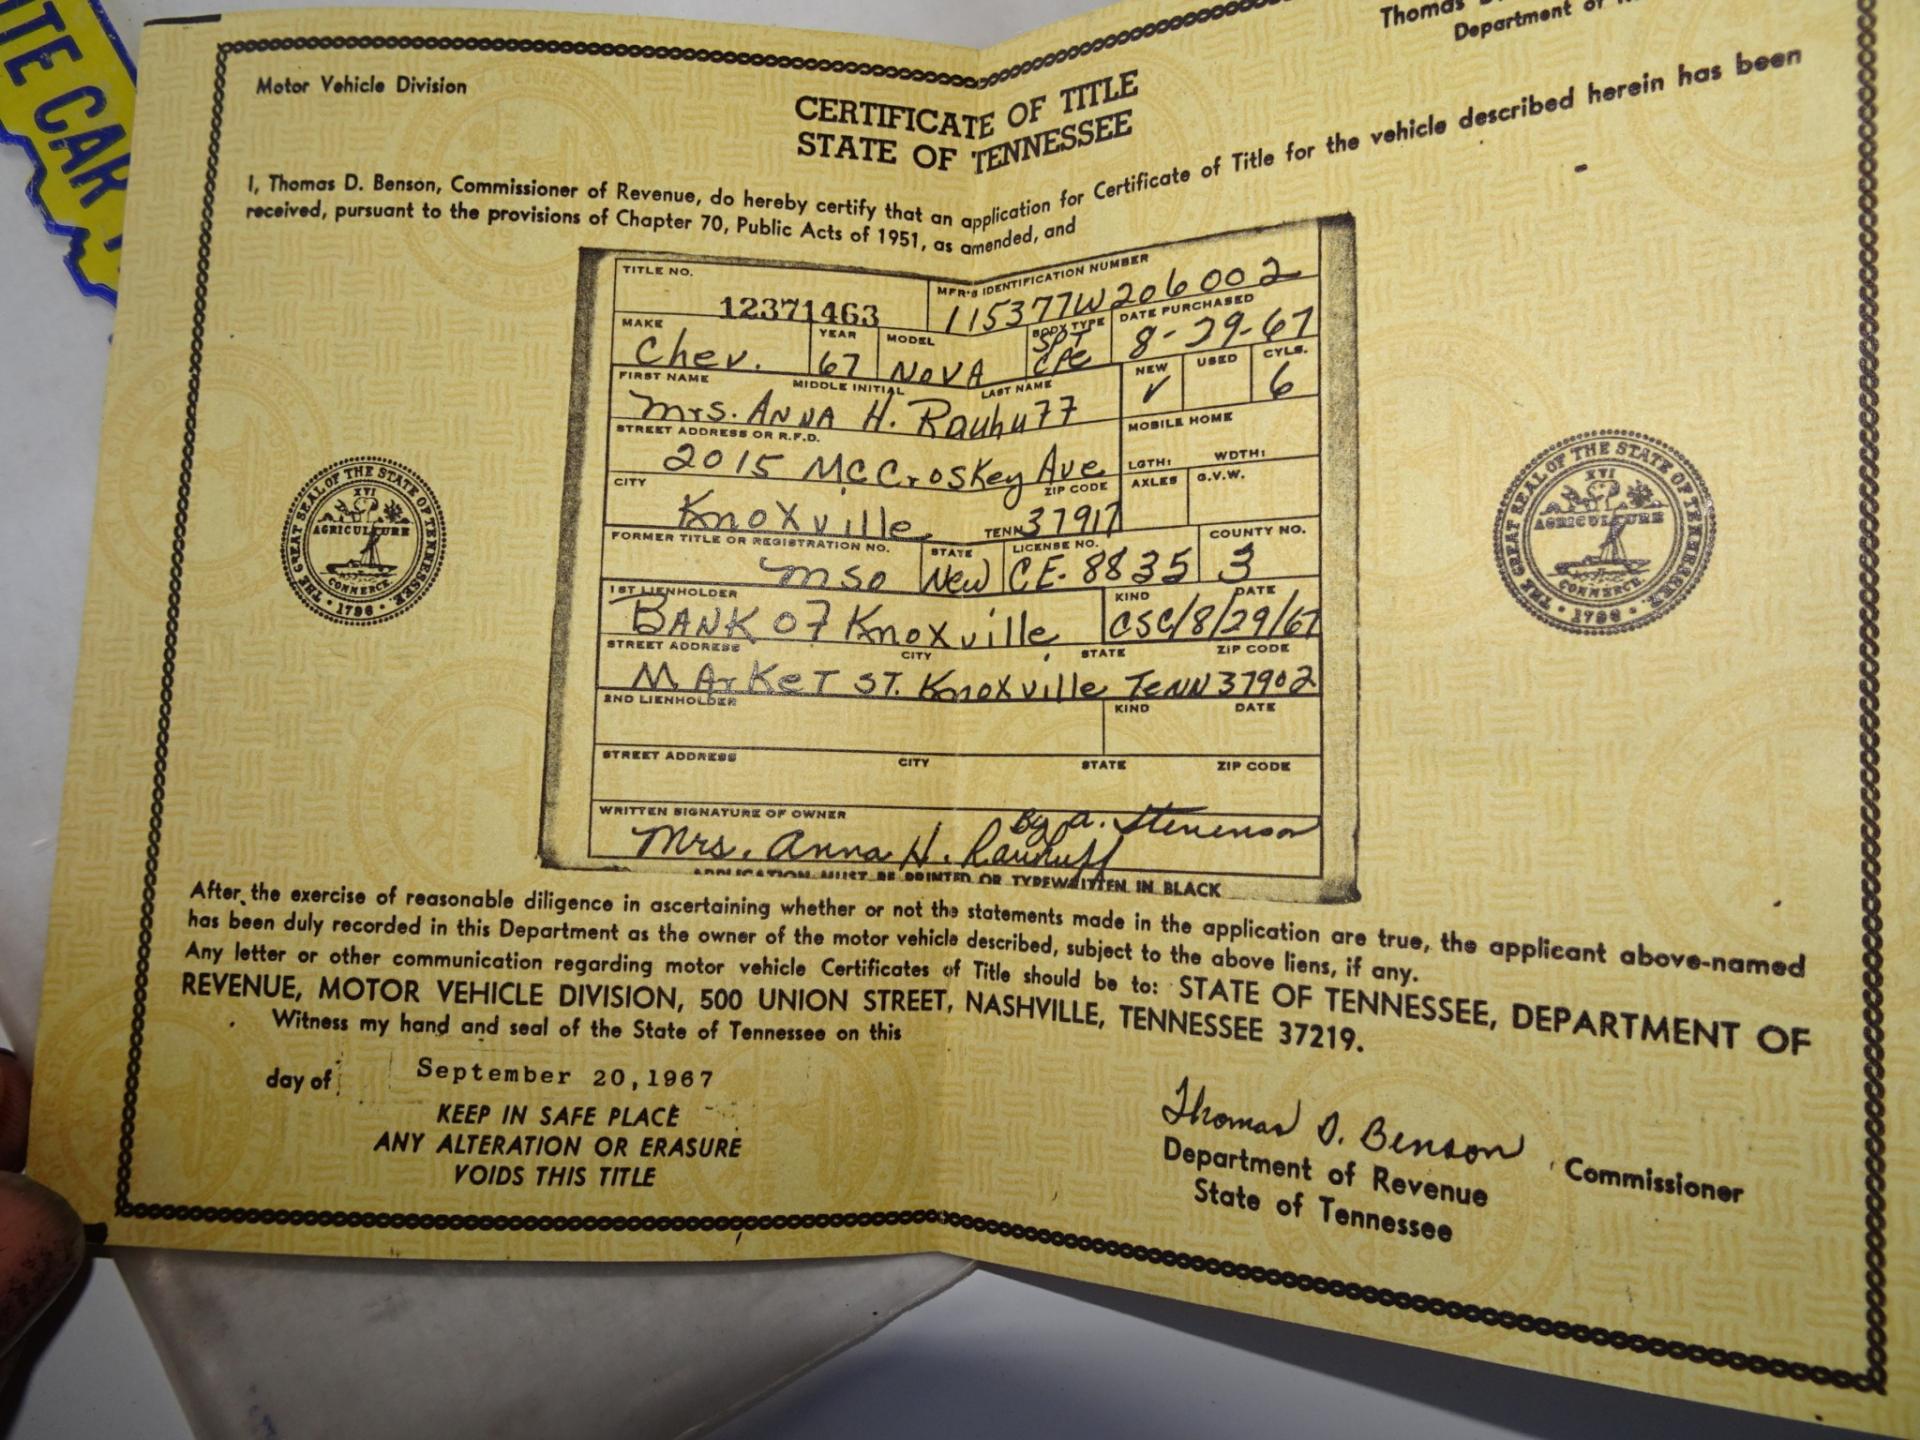 ITE CAR
Thomas
Department of
Motor Vehicle Division
CERTIFICATE OF TITLE
STATE OF TENNESSEE
I, Thomas D. Benson, Commissioner of Revenue, do hereby certify that an application for Certificate of Title for the vehicle described herein has been
received, pursuant to the provisions of Chapter 70, Public Acts of 1951, as amended, and
TITLE NO. MFR'S IDENTIFICATION NUMBER
12371463 115377W206002
MAKE YEAR MODEL BODY TYPE DATE PURCHASED
Chev. 67 NOVA SPT CPE 8-29-67
FIRST NAME MIDDLE INITIAL LAST NAME NEW USED CYLS.
Mrs. ANNA H. Rauhuff ✓ 6
STREET ADDRESS OR R.F.D. MOBILE HOME
2015 McCroskey Ave LGTH: WDTH:
CITY ZIP CODE AXLES G.V.W.
Knoxville TENN 37917
FORMER TITLE OR REGISTRATION NO. STATE LICENSE NO. COUNTY NO.
mso New CE-8835 3
1ST LIENHOLDER KIND DATE
BANK OF Knoxville CSC/8/29/67
STREET ADDRESS CITY STATE ZIP CODE
MArKeT ST. Knoxville TeNN 37902
2ND LIENHOLDER KIND DATE
STREET ADDRESS CITY STATE ZIP CODE
WRITTEN SIGNATURE OF OWNER By A. Stevenson
Mrs. Anna H. Rauhuff
APPLICATION MUST BE PRINTED OR TYPEWRITTEN IN BLACK
THE GREAT SEAL OF THE STATE OF TENNESSEE
XVI
AGRICULTURE
COMMERCE
1796
THE GREAT SEAL OF THE STATE OF TENNESSEE
XVI
AGRICULTURE
COMMERCE
1796
After the exercise of reasonable diligence in ascertaining whether or not the statements made in the application are true, the applicant above-named
has been duly recorded in this Department as the owner of the motor vehicle described, subject to the above liens, if any.
Any letter or other communication regarding motor vehicle Certificates of Title should be to: STATE OF TENNESSEE, DEPARTMENT OF
REVENUE, MOTOR VEHICLE DIVISION, 500 UNION STREET, NASHVILLE, TENNESSEE 37219.
Witness my hand and seal of the State of Tennessee on this
day of September 20,1967
KEEP IN SAFE PLACE
ANY ALTERATION OR ERASURE
VOIDS THIS TITLE
Thomas D. Benson Commissioner
Department of Revenue
State of Tennessee